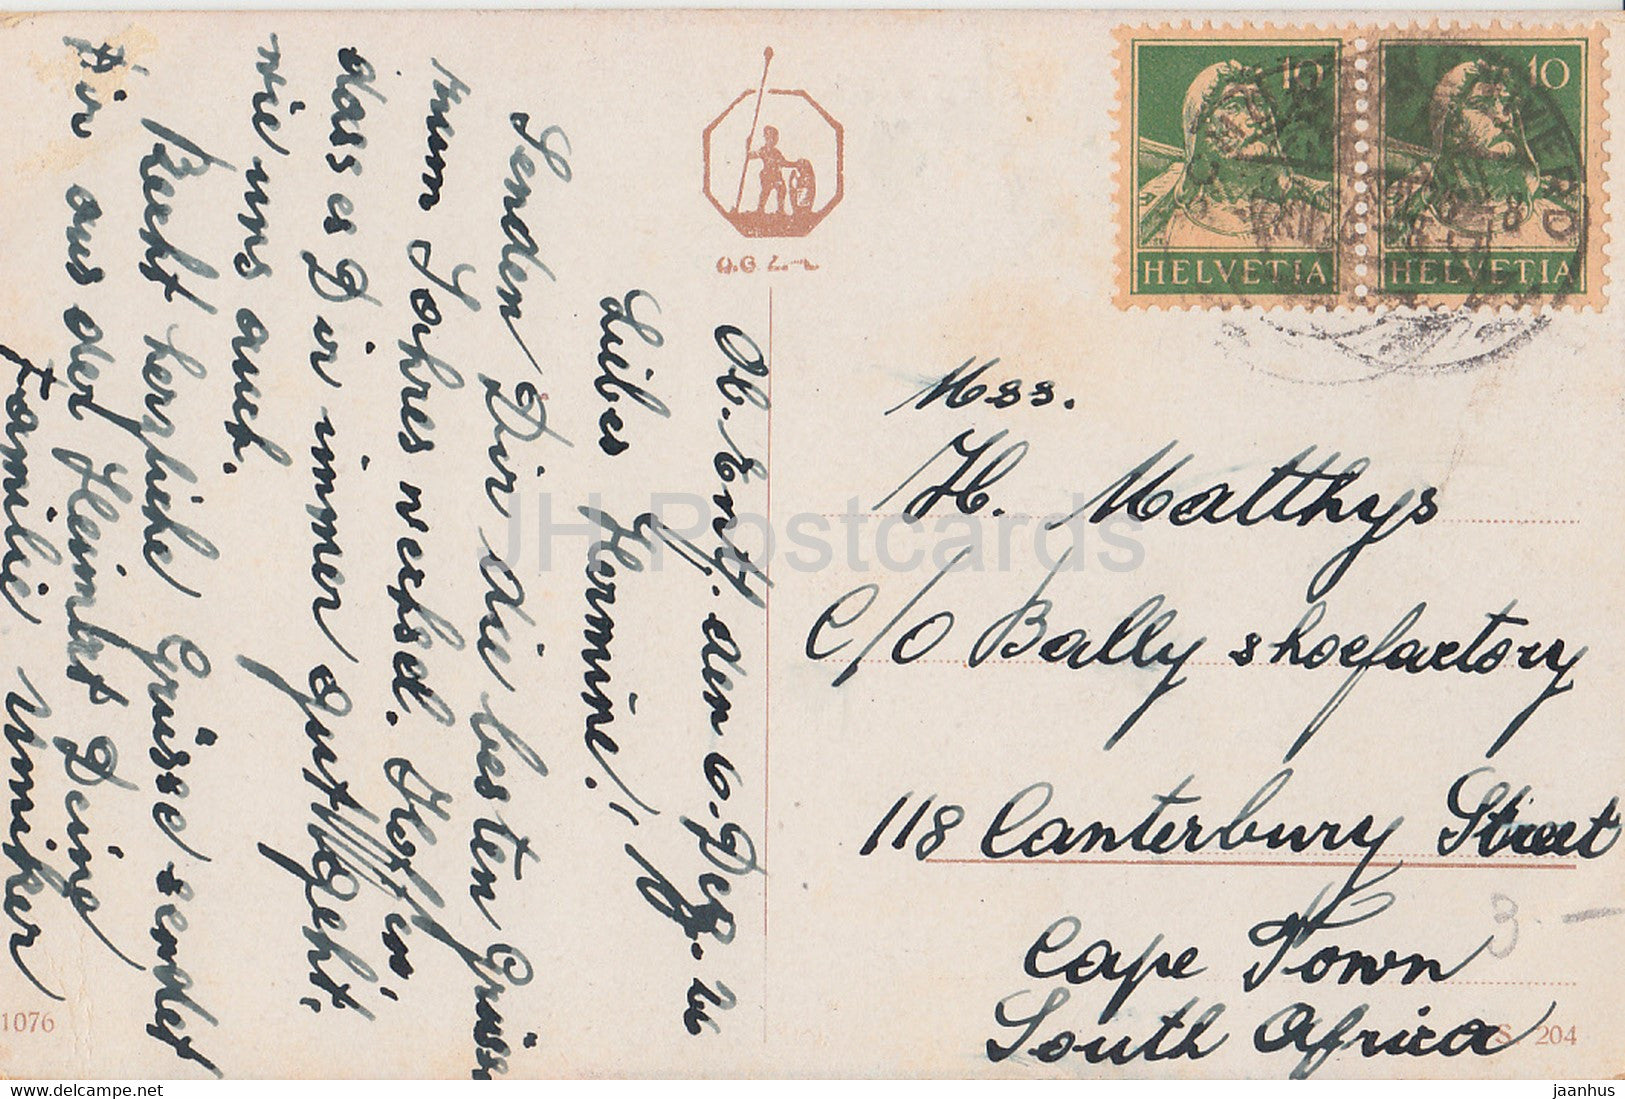 Ob. Entf. den 6. Dez. 26
Liebes Hermine!
Senden Dir die besten Grüsse
zum Jahreswechsel. Hoffen
dass es Dir immer gut geht,
wie uns auch.
Recht herzliche Grüsse sendet
Dir aus der Heimat Deine
Familie Umiker
HELVETIA 10
HELVETIA 10
Mss.
H. Matthys
C/O Bally shoefactory
118 Canterbury Street
Cape Town
South Africa
3.-
1076
S. 204
JH Postcards
jaanhus